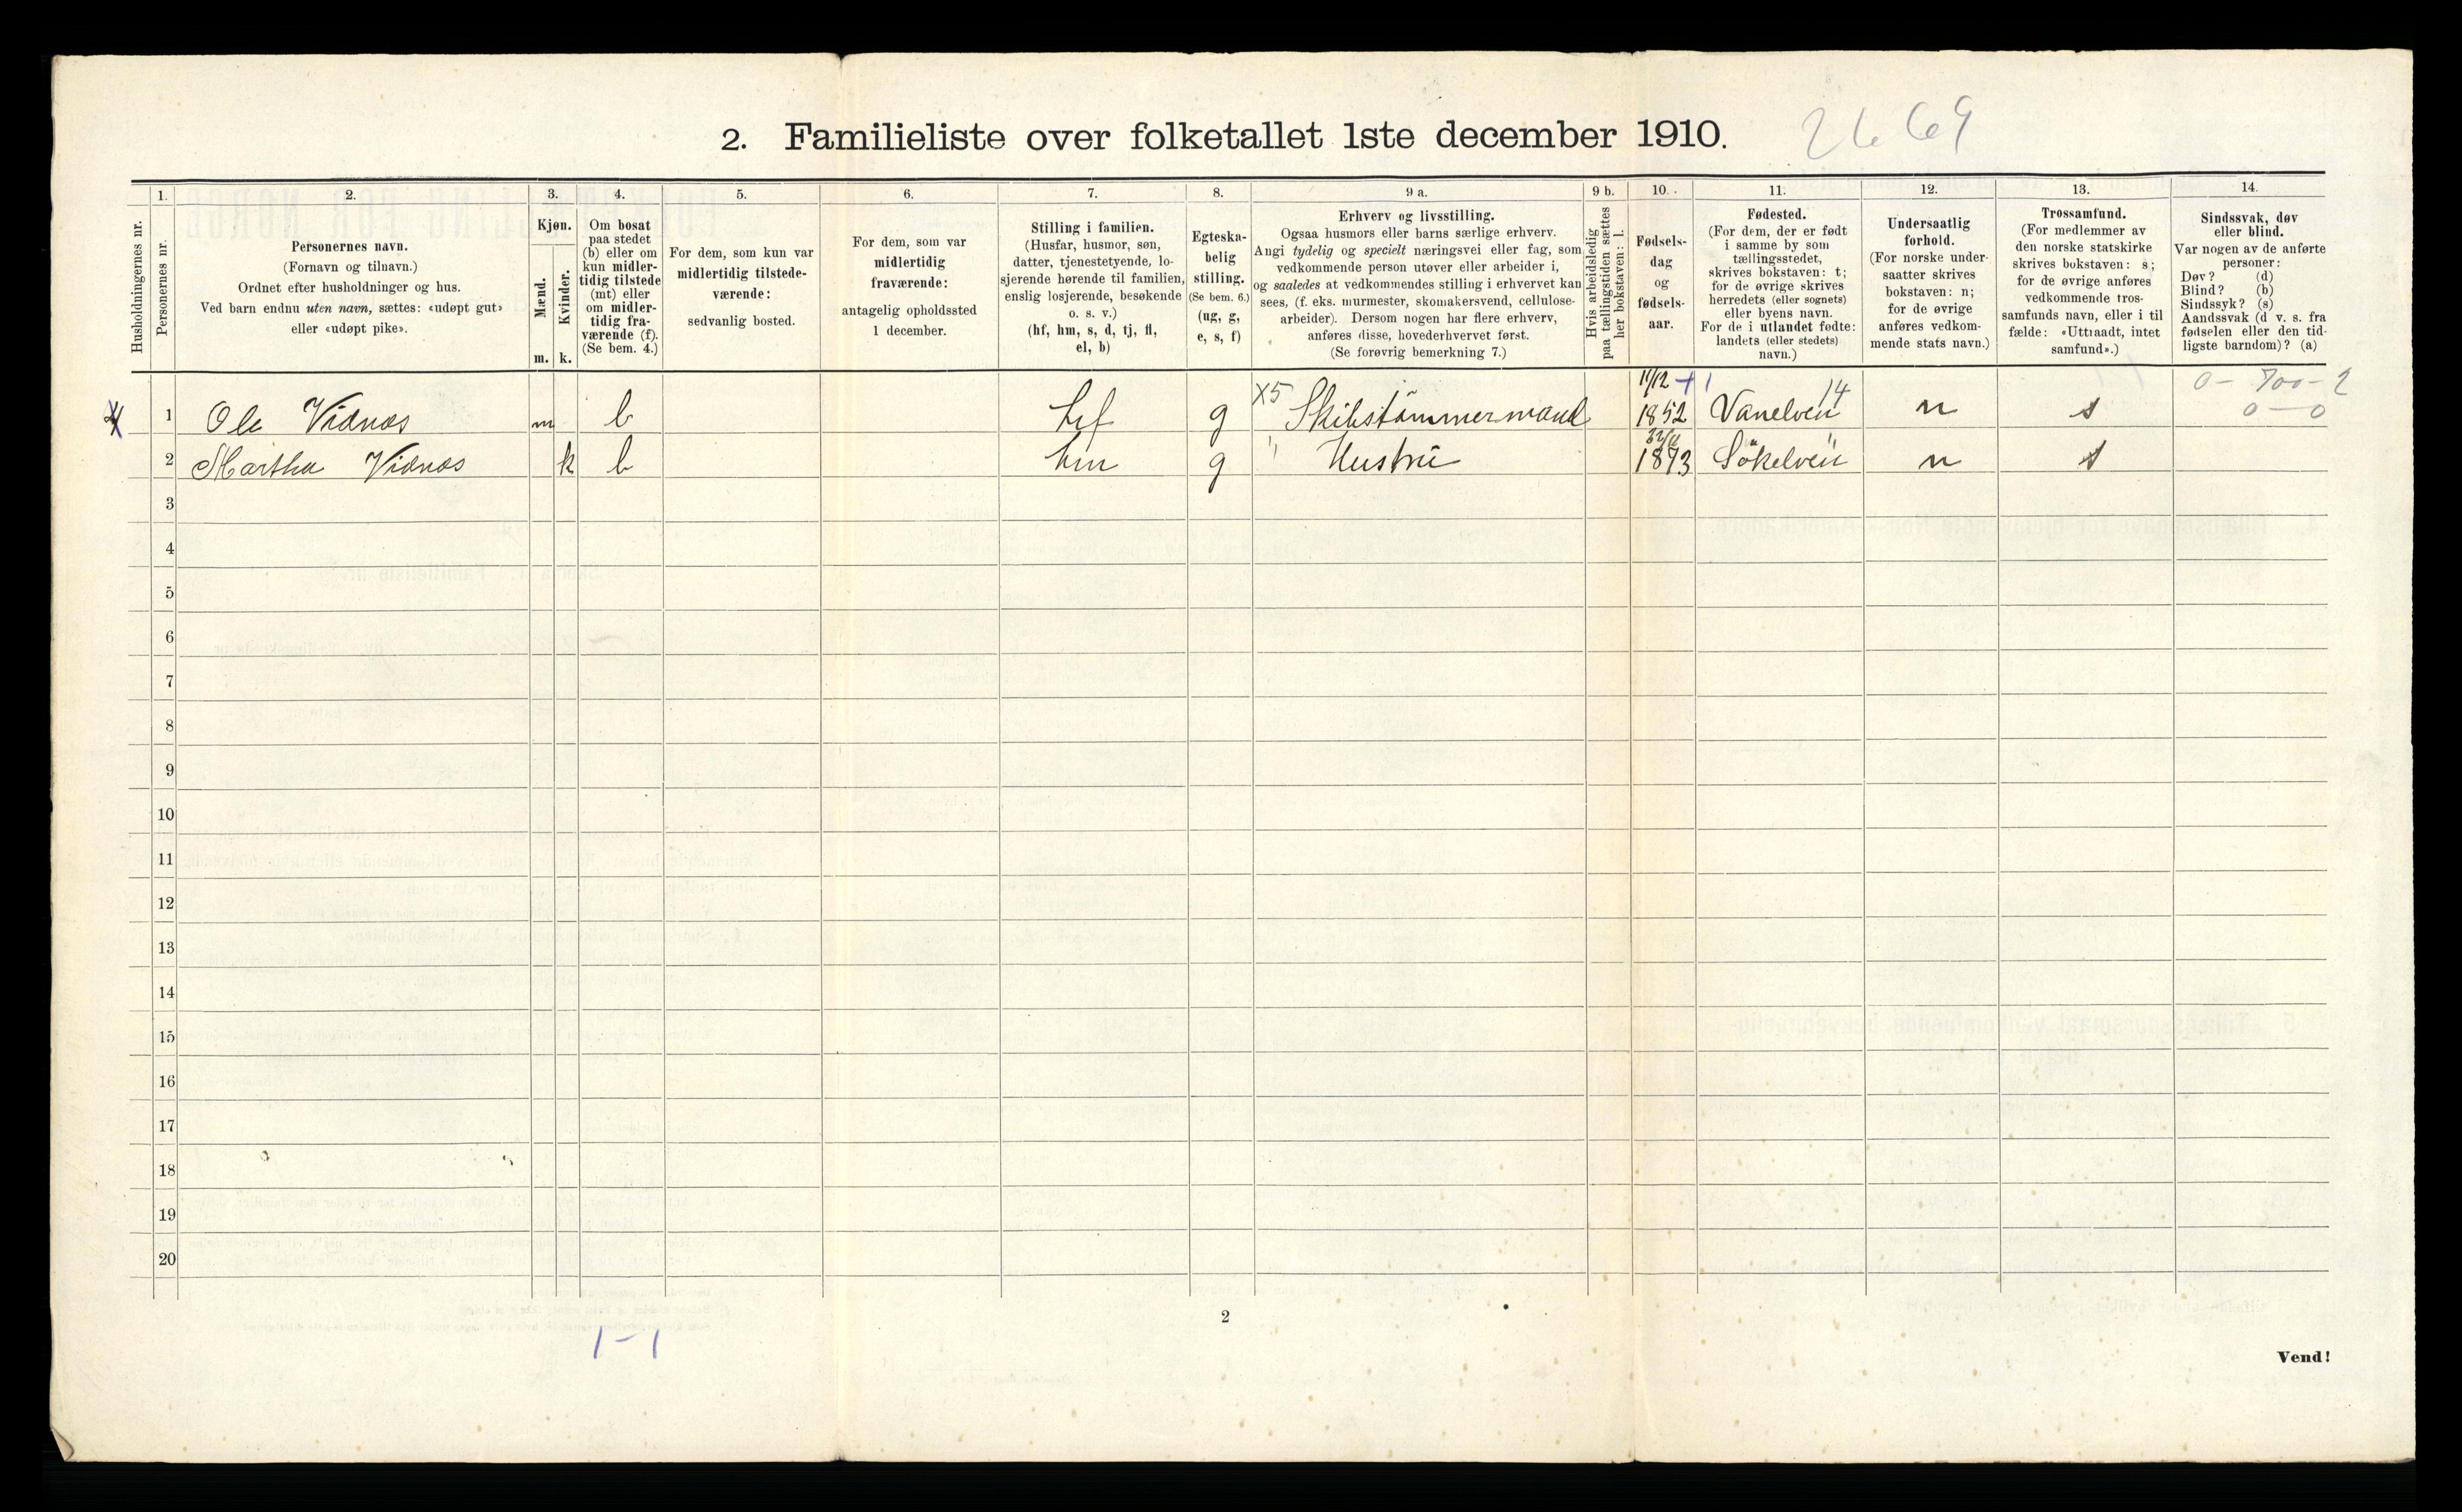 2. Familieliste over folketallet 1ste december 1910.
2669
1. 2. 3. 4. 5. 6. 7. 8. 9 a. 9 b. 10. 11. 12. 13. 14.
Husholdningernes nr.
Personernes nr.
Personernes navn.
(Fornavn og tilnavn.)
Ordnet efter husholdninger og hus.
Ved barn endnu uten navn, sættes: «udøpt gut»
eller «udøpt pike».
Kjøn.
Mænd.
Kvinder.
m. k.
Om bosat
paa stedet
(b) eller om
kun midler-
tidig tilstede
(mt) eller
om midler-
tidig fra-
værende (f).
(Se bem. 4.)
For dem, som kun var
midlertidig tilstede-
værende:
sedvanlig bosted.
For dem, som var
midlertidig
fraværende:
antagelig opholdssted
1 december.
Stilling i familien.
(Husfar, husmor, søn,
datter, tjenestetyende, lo-
sjerende hørende til familien,
enslig losjerende, besøkende
o. s. v.)
(hf, hm, s, d, tj, fl,
el, b)
Egteska-
belig
stilling.
(Se bem. 6.)
(ug, g,
e, s, f)
Erhverv og livsstilling.
Ogsaa husmors eller barns særlige erhverv.
Angi tydelig og specielt næringsvei eller fag, som
vedkommende person utøver eller arbeider i,
og saaledes at vedkommendes stilling i erhvervet kan
sees, (f. eks. murmester, skomakersvend, cellulose-
arbeider). Dersom nogen har flere erhverv,
anføres disse, hovederhvervet først.
(Se forøvrig bemerkning 7.)
Hvis arbeidsledig
paa tællingstiden sættes
her bokstaven: l.
Fødsels-
dag
og
fødsels-
aar.
Fødested.
(For dem, der er født
i samme by som
tællingsstedet,
skrives bokstaven: t;
for de øvrige skrives
herredets (eller sognets)
eller byens navn.
For de i utlandet fødte:
landets (eller stedets)
navn.)
Undersaatlig
forhold.
(For norske under-
saatter skrives
bokstaven: n;
for de øvrige
anføres vedkom-
mende stats navn.)
Trossamfund.
(For medlemmer av
den norske statskirke
skrives bokstaven: s;
for de øvrige anføres
vedkommende tros-
samfunds navn, eller i til
fælde: «Uttraadt, intet
samfund».)
Sindssvak, døv
eller blind.
Var nogen av de anførte
personer:
Døv? (d)
Blind? (b)
Sindssyk? (s)
Aandssvak (d v. s. fra
fødselen eller den tid-
ligste barndom)? (a)
X5 11/12 14 0 - 700 - 2
1 Ole Vidnæs m b hf g Skibstömmermand 1852 Vanelven n s 0 - 0
2 Martha Vidnæs k b hm g " Hustru 1873 Sökelven n s
3
4
5
6
7
8
9
10
11
12
13
14
15
16
17
18
19
20
2
1-1
Vend!